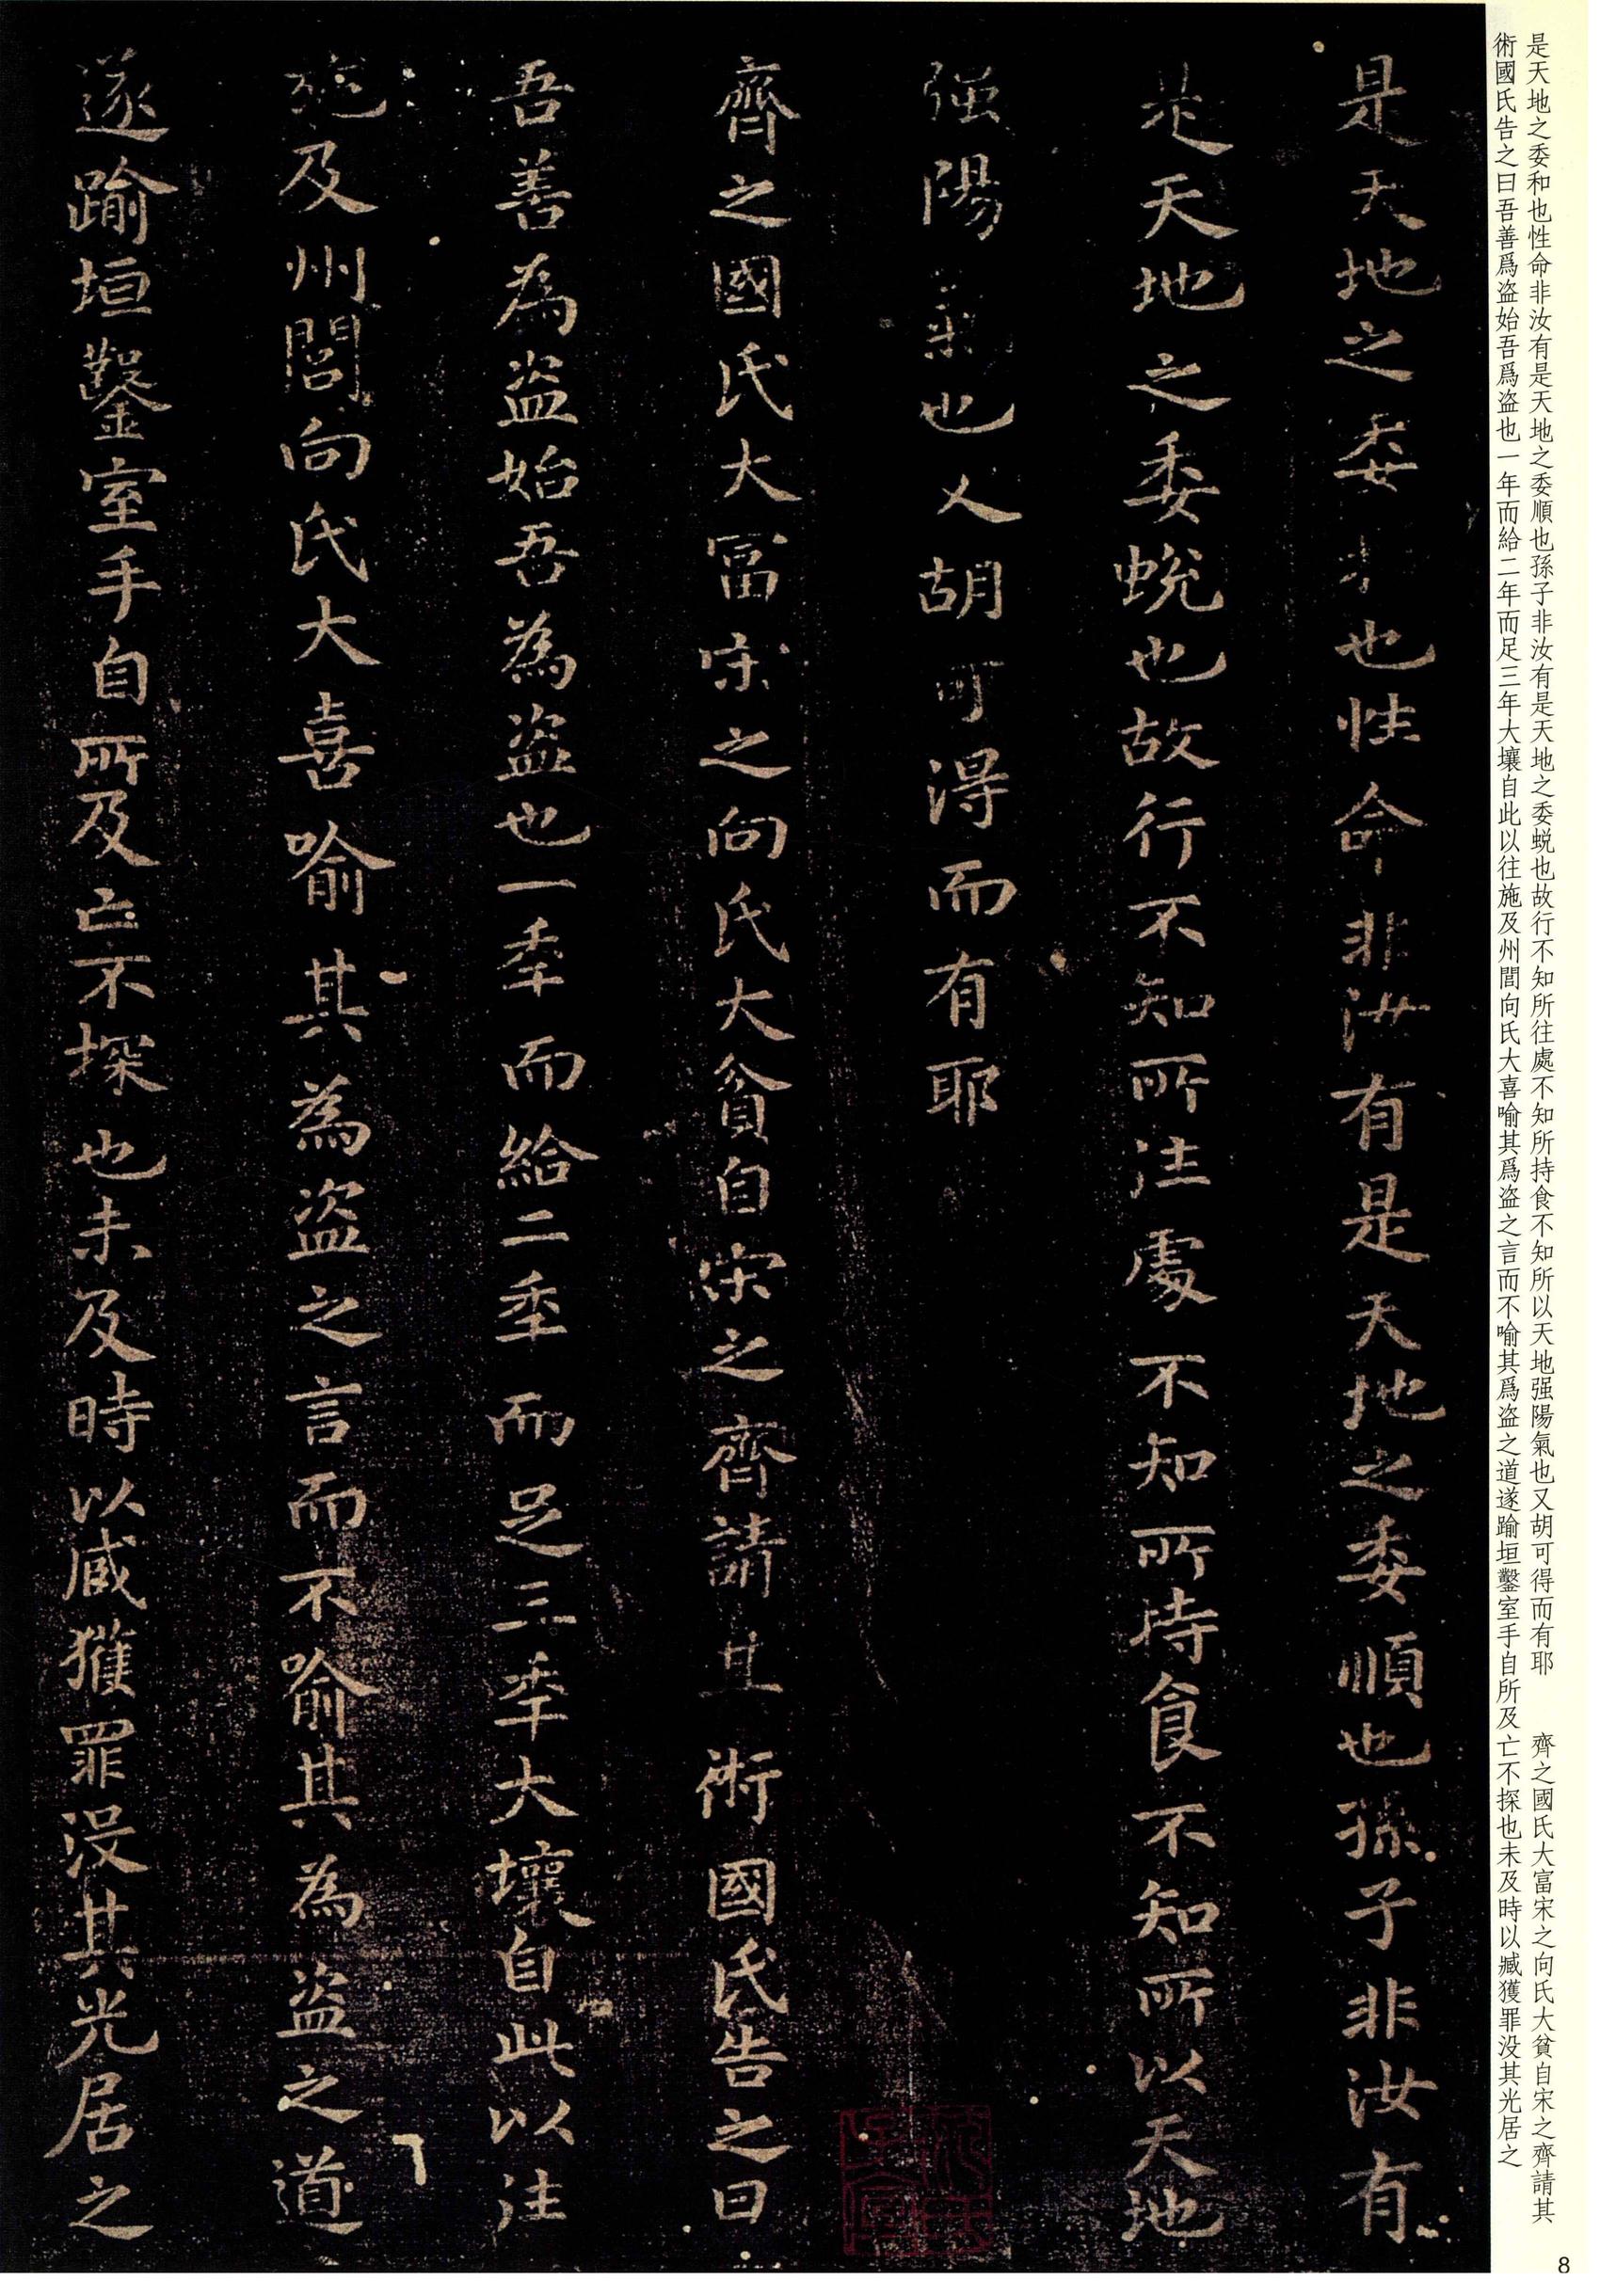 是天地之委和也性命非汝有是天地之委順也孫子非汝有是天地之委蜕也故行不知所往處不知所持食不知所以天地强陽氣也又胡可得而有耶　齊之國氏大富宋之向氏大貧自宋之齊請其
術國氏告之曰吾善爲盗始吾爲盗也一年而給二年而足三年大壤自此以往施及州閭向氏大喜喻其爲盗之言而不喻其爲盗之道遂踰垣鑿室手自所及亡不探也未及時以臧獲罪没其光居之
是天地之委和也性命非汝有是天地之委順也孫子非汝有
是天地之委蜕也故行不知所往處不知所持食不知所以天地
强陽氣也又胡可得而有耶
齊之國氏大冨宋之向氏大貧自宋之齊請其術國氏告之曰
吾善為盗始吾為盗也一秊而給二秊而足三秊大壤自此以往
施及州閭向氏大喜喻其為盗之言而不喻其為盗之道
遂踰垣鑿室手自所及亡不探也未及時以臧獲罪没其光居之
8